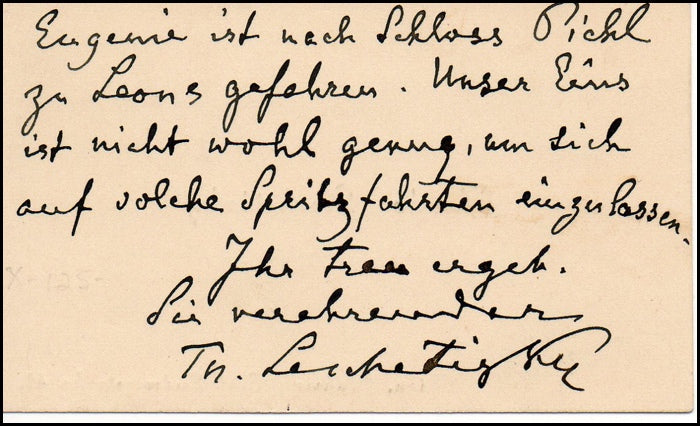 Eugenie ist nach Schloss Pichl
zu Leons gefahren. Unser Eins
ist nicht wohl genug, um sich
auf solche Spritzfahrten einzulassen.
Ihr treu ergeb.
Sie verehrender
Th. Leschetizky